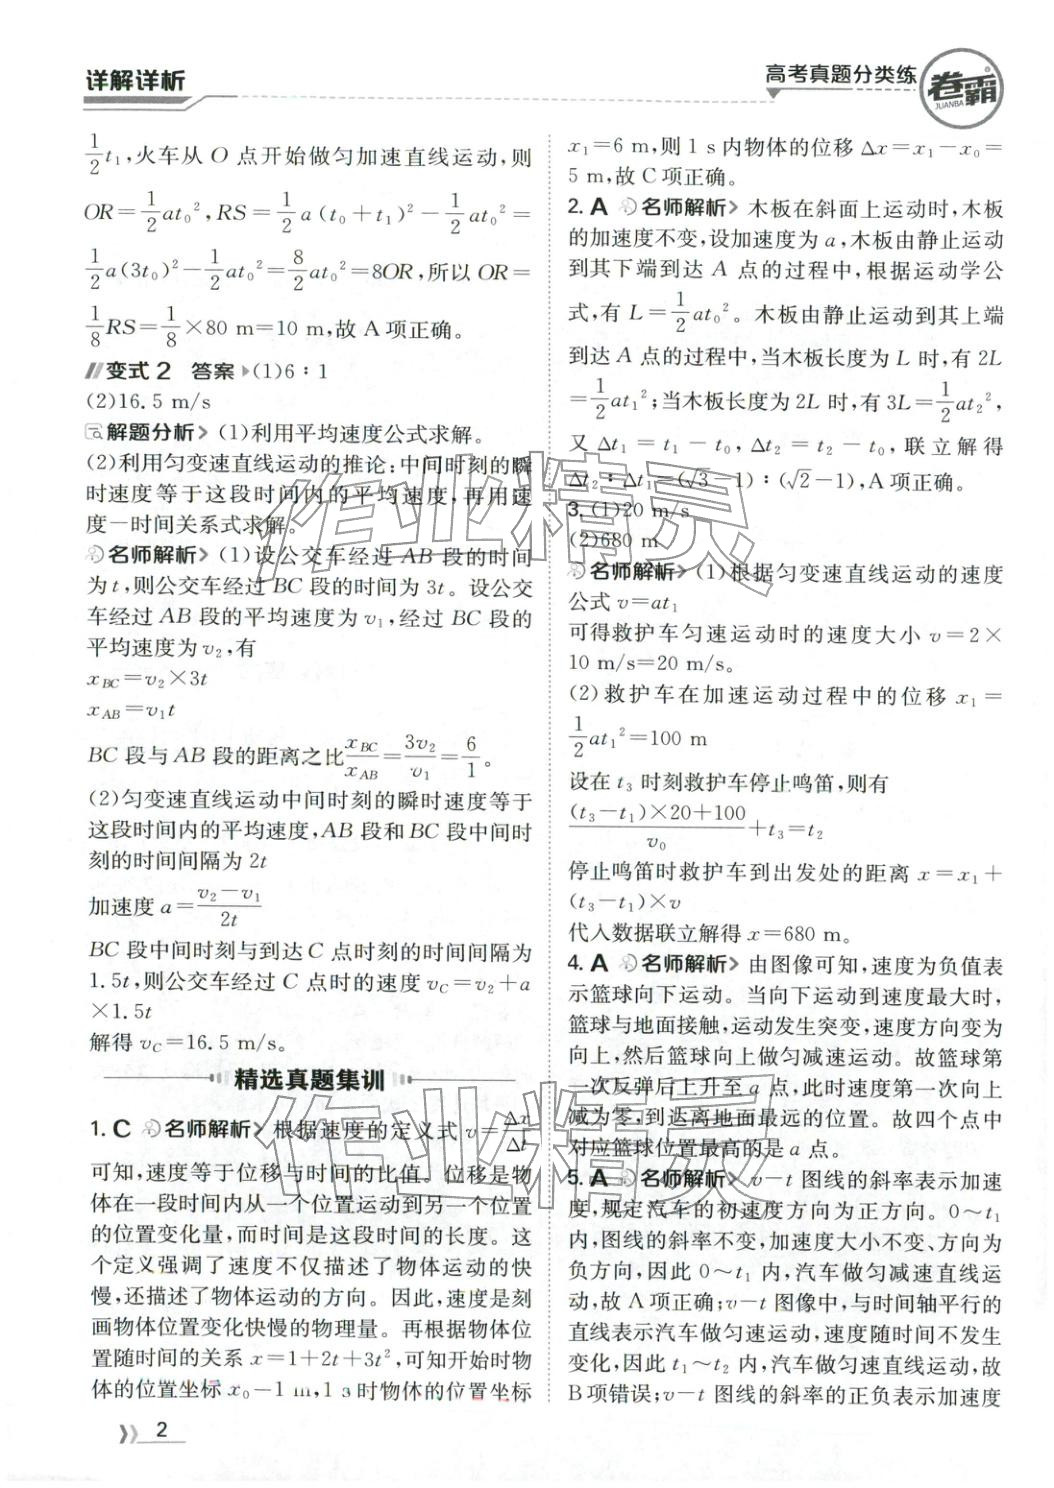 详解详析
高考真题分类练
卷霸
JUANBA
1/2 t₁,火车从 O 点开始做匀加速直线运动,则
OR=1/2 at₀²,RS=1/2 a(t₀+t₁)²-1/2 at₀²=
1/2 a(3t₀)²-1/2 at₀²=8/2 at₀²=8OR,所以 OR=
1/8 RS=1/8×80 m=10 m,故 A 项正确。
变式 2 答案 (1)6∶1
(2)16.5 m/s
解题分析>(1)利用平均速度公式求解。
(2)利用匀变速直线运动的推论:中间时刻的瞬
时速度等于这段时间内的平均速度,再用速
度—时间关系式求解。
名师解析>(1)设公交车经过 AB 段的时间
为 t,则公交车经过 BC 段的时间为 3t。设公交
车经过 AB 段的平均速度为 v₁,经过 BC 段的
平均速度为 v₂,有
x_BC=v₂×3t
x_AB=v₁t
BC 段与 AB 段的距离之比 x_BC/x_AB=3v₂/v₁=6/1。
(2)匀变速直线运动中间时刻的瞬时速度等于
这段时间内的平均速度,AB 段和 BC 段中间时
刻的时间间隔为 2t
加速度 a=(v₂-v₁)/2t
BC 段中间时刻与到达 C 点时刻的时间间隔为
1.5t,则公交车经过 C 点时的速度 v_C=v₂+a
×1.5t
解得 v_C=16.5 m/s。
精选真题集训
1. C 名师解析>根据速度的定义式 v=Δx/Δt
可知,速度等于位移与时间的比值。位移是物
体在一段时间内从一个位置运动到另一个位置
的位置变化量,而时间是这段时间的长度。这
个定义强调了速度不仅描述了物体运动的快
慢,还描述了物体运动的方向。因此,速度是刻
画物体位置变化快慢的物理量。再根据物体位
置随时间的关系 x=1+2t+3t²,可知开始时物
体的位置坐标 x₀=1 m,1 s 时物体的位置坐标
x₁=6 m,则 1 s 内物体的位移 Δx=x₁-x₀=
5 m,故 C 项正确。
2. A 名师解析>木板在斜面上运动时,木板
的加速度不变,设加速度为 a,木板由静止运动
到其下端到达 A 点的过程中,根据运动学公
式,有 L=1/2 at₀²。木板由静止运动到其上端
到达 A 点的过程中,当木板长度为 L 时,有 2L
=1/2 at₁²;当木板长度为 2L 时,有 3L=1/2 at₂²,
又 Δt₁=t₁-t₀,Δt₂=t₂-t₀,联立解得
Δt₂∶Δt₁=(√3-1)∶(√2-1),A 项正确。
3. (1)20 m/s
(2)680 m
名师解析>(1)根据匀变速直线运动的速度
公式 v=at₁
可得救护车匀速运动时的速度大小 v=2×
10 m/s=20 m/s。
(2)救护车在加速运动过程中的位移 x₁=
1/2 at₁²=100 m
设在 t₃ 时刻救护车停止鸣笛,则有
((t₃-t₁)×20+100)/v₀+t₃=t₂
停止鸣笛时救护车到出发处的距离 x=x₁+
(t₃-t₁)×v
代入数据联立解得 x=680 m。
4. A 名师解析>由图像可知,速度为负值表
示篮球向下运动。当向下运动到速度最大时,
篮球与地面接触,运动发生突变,速度方向变为
向上,然后篮球向上做匀减速运动。故篮球第
一次反弹后上升至 a 点,此时速度第一次向上
减为零,到达离地面最远的位置。故四个点中
对应篮球位置最高的是 a 点。
5. A 名师解析>v-t 图线的斜率表示加速
度,规定汽车的初速度方向为正方向。0~t₁
内,图线的斜率不变,加速度大小不变、方向为
负方向,因此 0~t₁ 内,汽车做匀减速直线运
动,故 A 项正确;v-t 图像中,与时间轴平行的
直线表示汽车做匀速运动,速度随时间不发生
变化,因此 t₁~t₂ 内,汽车做匀速直线运动,故
B 项错误;v-t 图线的斜率的正负表示加速度
2
作业精灵
作业精灵